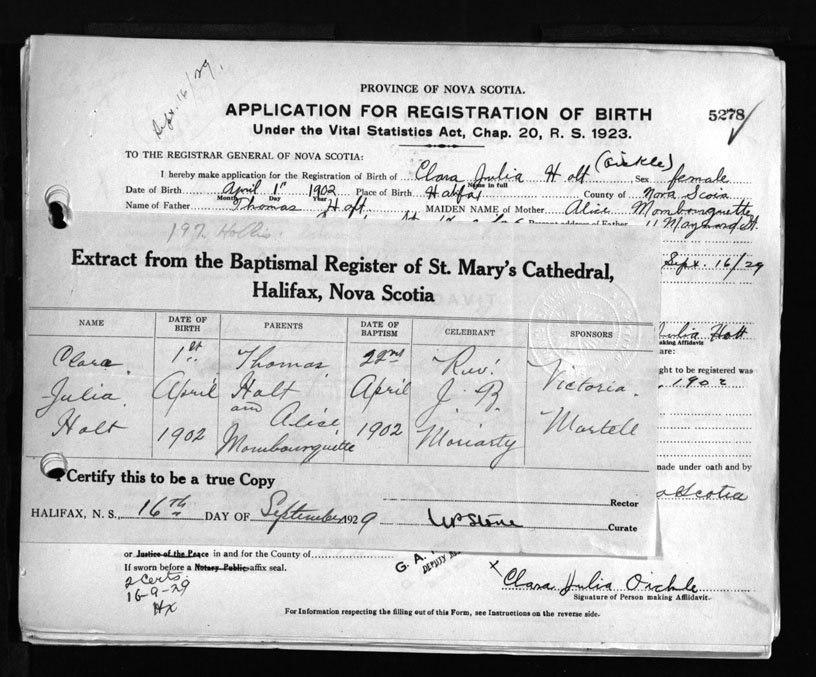 Sept. 16/29.
PROVINCE OF NOVA SCOTIA.
APPLICATION FOR REGISTRATION OF BIRTH
5278
Under the Vital Statistics Act, Chap. 20, R. S. 1923.
TO THE REGISTRAR GENERAL OF NOVA SCOTIA:
I hereby make application for the Registration of Birth of Clara Julia Holt (Oickle) Sex female
Name in full
Date of Birth April 1st 1902 Place of Birth Halifax County of Nova Scotia
Month Day Year
Name of Father Thomas Holt MAIDEN NAME of Mother Alice Mombourquette
address of Father 11 Maynard St.
192 Hollis.
Sept. 16/29
Extract from the Baptismal Register of St. Mary's Cathedral,
Halifax, Nova Scotia
NAME DATE OF BIRTH PARENTS DATE OF BAPTISM CELEBRANT SPONSORS
Clara 1st Thomas 22nd Rev. Victoria
Julia April Holt April J. B. Martell
Holt 1902 and Alice Mombourquette 1902 Moriarty
Julia Holt
aking Affidavit
are:
ght to be registered was
1902
I Certify this to be a true Copy
made under oath and by
Rector
a Scotia
HALIFAX, N. S., 16th DAY OF September 1929
Curate
or Justice of the Peace in and for the County of
If sworn before a Notary Public affix seal.
G. A.
DEPUTY
2 Certs.
16-9-29
Hx
x Clara Julia Oickle
Signature of Person making Affidavit.
For Information respecting the filling out of this Form, see Instructions on the reverse side.